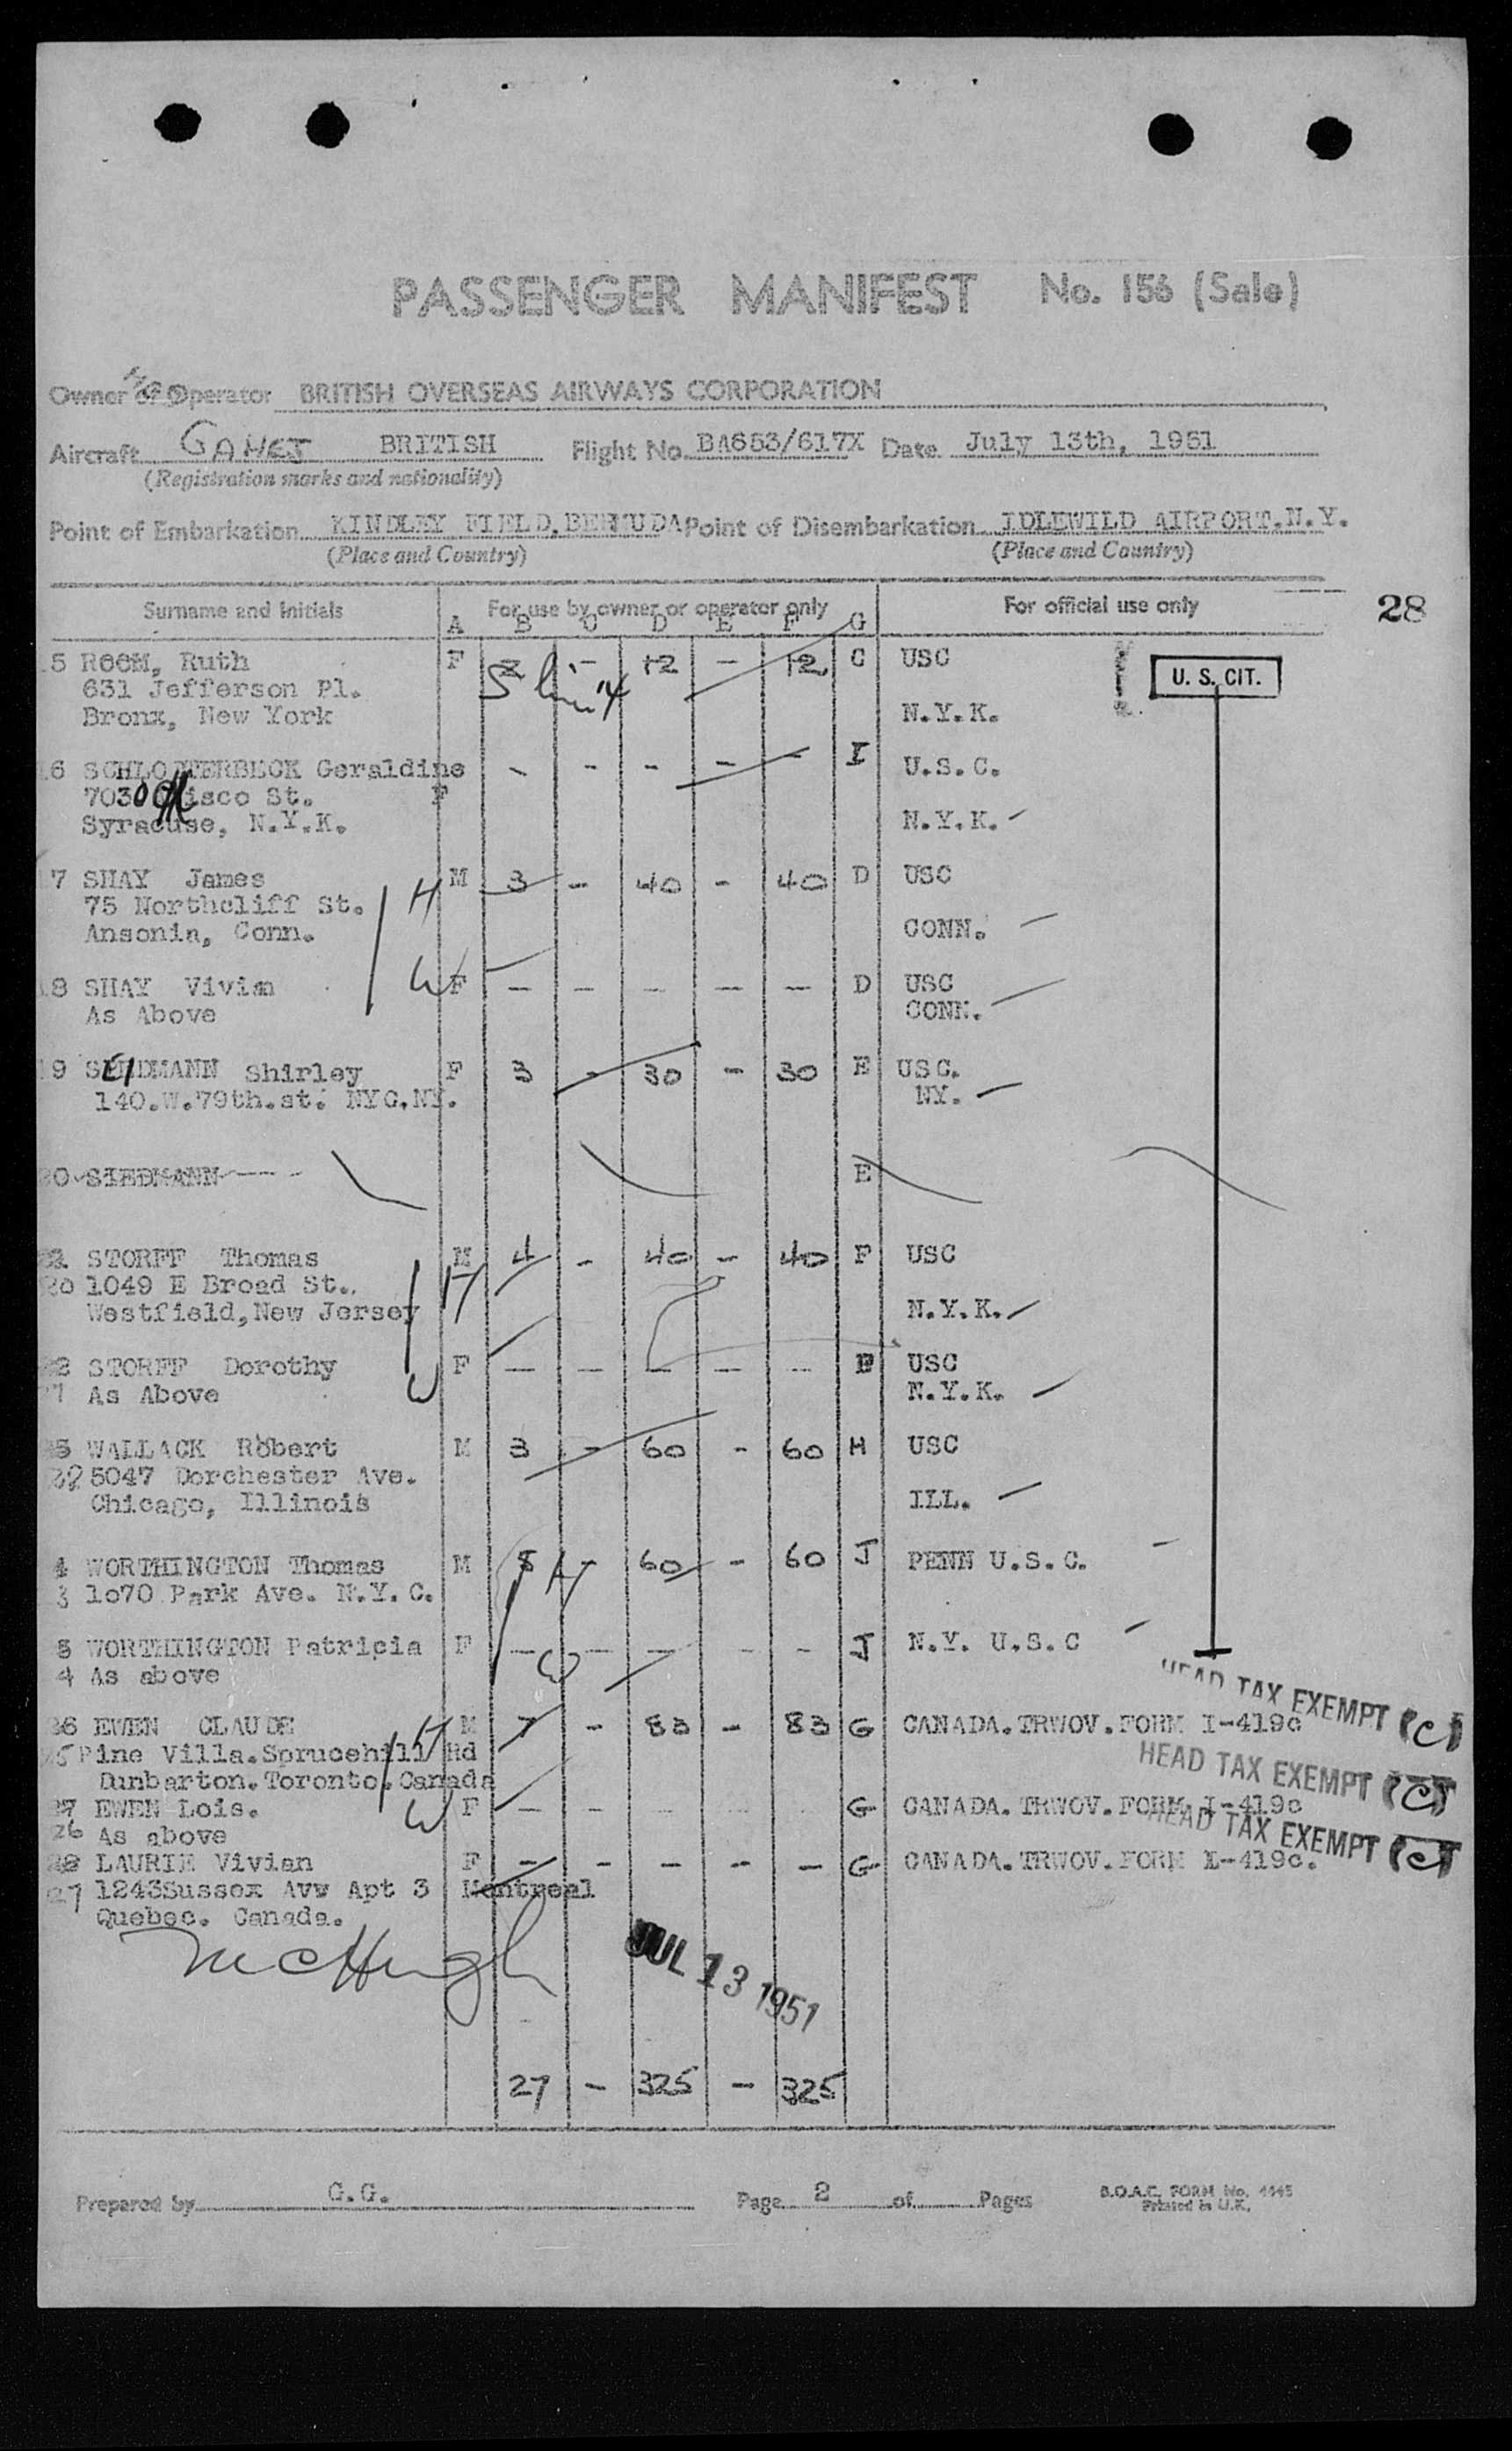 PASSENGER MANIFEST No. 156 (Sale)
Owner or Operator BRITISH OVERSEAS AIRWAYS CORPORATION
Aircraft GAHEJ BRITISH Flight No. BA653/617X Date July 13th, 1951
(Registration marks and nationality)
Point of Embarkation KINDLEY FIELD, BERMUDA Point of Disembarkation IDLEWILD AIRPORT.N.Y.
(Place and Country) (Place and Country)
Surname and Initials For use by owner or operator only For official use only 28
A B C D E F G
5 ROOM, Ruth F - 12 - 12 C USC U. S. CIT.
631 Jefferson Pl.
Bronx, New York N.Y.K.
16 Geraldine - - - - - I U.S.C.
F
Syracuse, N.Y.K. N.Y.K.
7 SHAY James M 3 - 40 - 40 D USC
75 Northcliff St. H
Ansonia, Conn. CONN.
18 SHAY Vivian W F - - - - - D USC
As Above CONN.
19 SEIDMANN Shirley F 3 - 30 - 30 E USC.
140.W.79th.st. NYC.NY. NY.
20 SIEDMANN E
STORFF Thomas M 4 - 40 - 40 F USC
20 1049 E Broad St. H
Westfield, New Jersey N.Y.K.
22 STORFF Dorothy F - - - - - F USC
As Above W N.Y.K.
WALLACK Robert M 3 - 60 - 60 H USC
5047 Dorchester Ave.
Chicago, Illinois ILL.
4 WORTHINGTON Thomas M 8 H - 60 - 60 J PENN U.S.C.
3 1o70 Park Ave. N.Y.C.
5 WORTHINGTON Patricia F - - - - - J N.Y. U.S.C
4 As above W
HEAD TAX EXEMPT (C)
26 EWEN CLAUDE H M 7 - 83 - 83 G CANADA.TRWOV.FORM I-419c
25 Pine Villa.Sprucehill Rd
HEAD TAX EXEMPT (C)
Dunbarton.Toronto.Canada
27 EWEN Lois. W F - - G CANADA.TRWOV.FORM I-419c
26 As above
HEAD TAX EXEMPT (C)
28 LAURIN Vivian F - - - - - G CANADA.TRWOV.FORM I-419c.
27 1243Sussex Avv Apt 3 Montreal
Quebec. Canada.
McHugh
JUL 13 1951
27 - 325 - 325
Prepared by G.G. Page 2 of Pages B.O.A.C. FORM No. 4445
Printed in U.K.